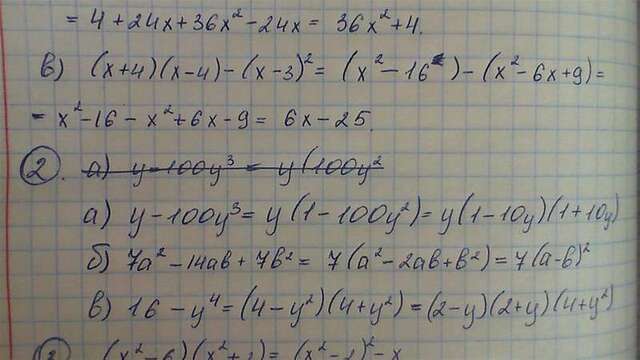 = 4 + 24x + 36x² - 24x = 36x² + 4.
в) (x+4)(x-4) - (x-3)² = (x² - 16) - (x² - 6x + 9) =
= x² - 16 - x² + 6x - 9 = 6x - 25.
2. а) y - 100y³ = y(100y²
а) y - 100y³ = y(1 - 100y²) = y(1 - 10y)(1 + 10y)
б) 7a² - 14ab + 7b² = 7(a² - 2ab + b²) = 7(a - b)²
в) 16 - y⁴ = (4 - y²)(4 + y²) = (2 - y)(2 + y)(4 + y²)